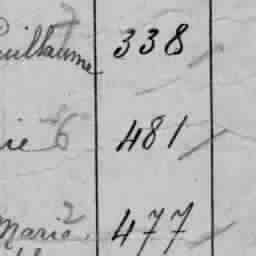 Guillaume 338
ie 6 481
Marie 2 477